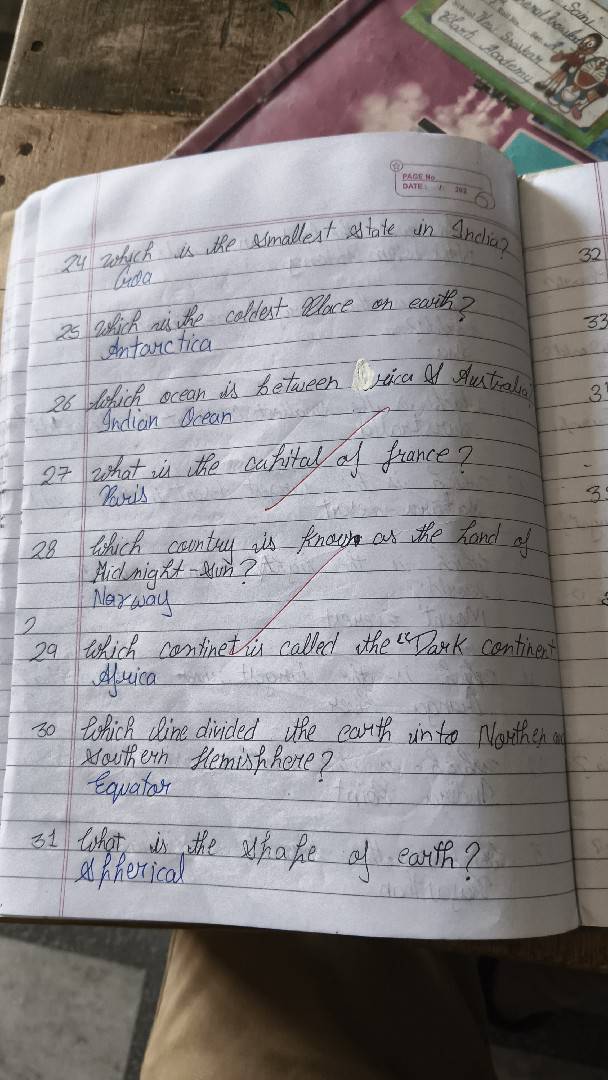 Sani
General Knowledge
Vki Sanskar
Academy
PAGE No.
DATE: / / 202
6
24 which is the smallest state in India?
Goa
25 Which is the coldest Place on earth?
Antarctica
26 Which ocean is between rica & Australia
Indian Ocean
27 what is the capital of france?
Paris
28 Which country is known as the land of
Midnight-Sun?
Narway
2
29 Which continet is called the "Dark continent
Africa
30 Which line divided the earth into Northern an
Southern Hemisphere?
Equator
31 What is the shape of earth?
Spherical
32
33
3
3